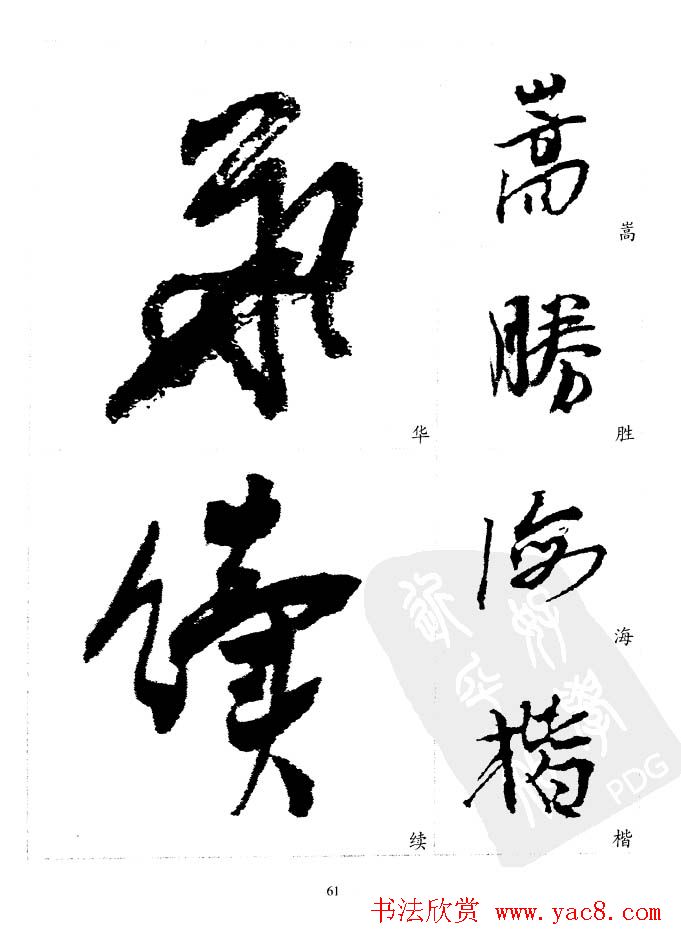 華
华
續
续
嵩
嵩
勝
胜
海
海
楷
楷
PDG
61
书法欣赏 www.yac8.com